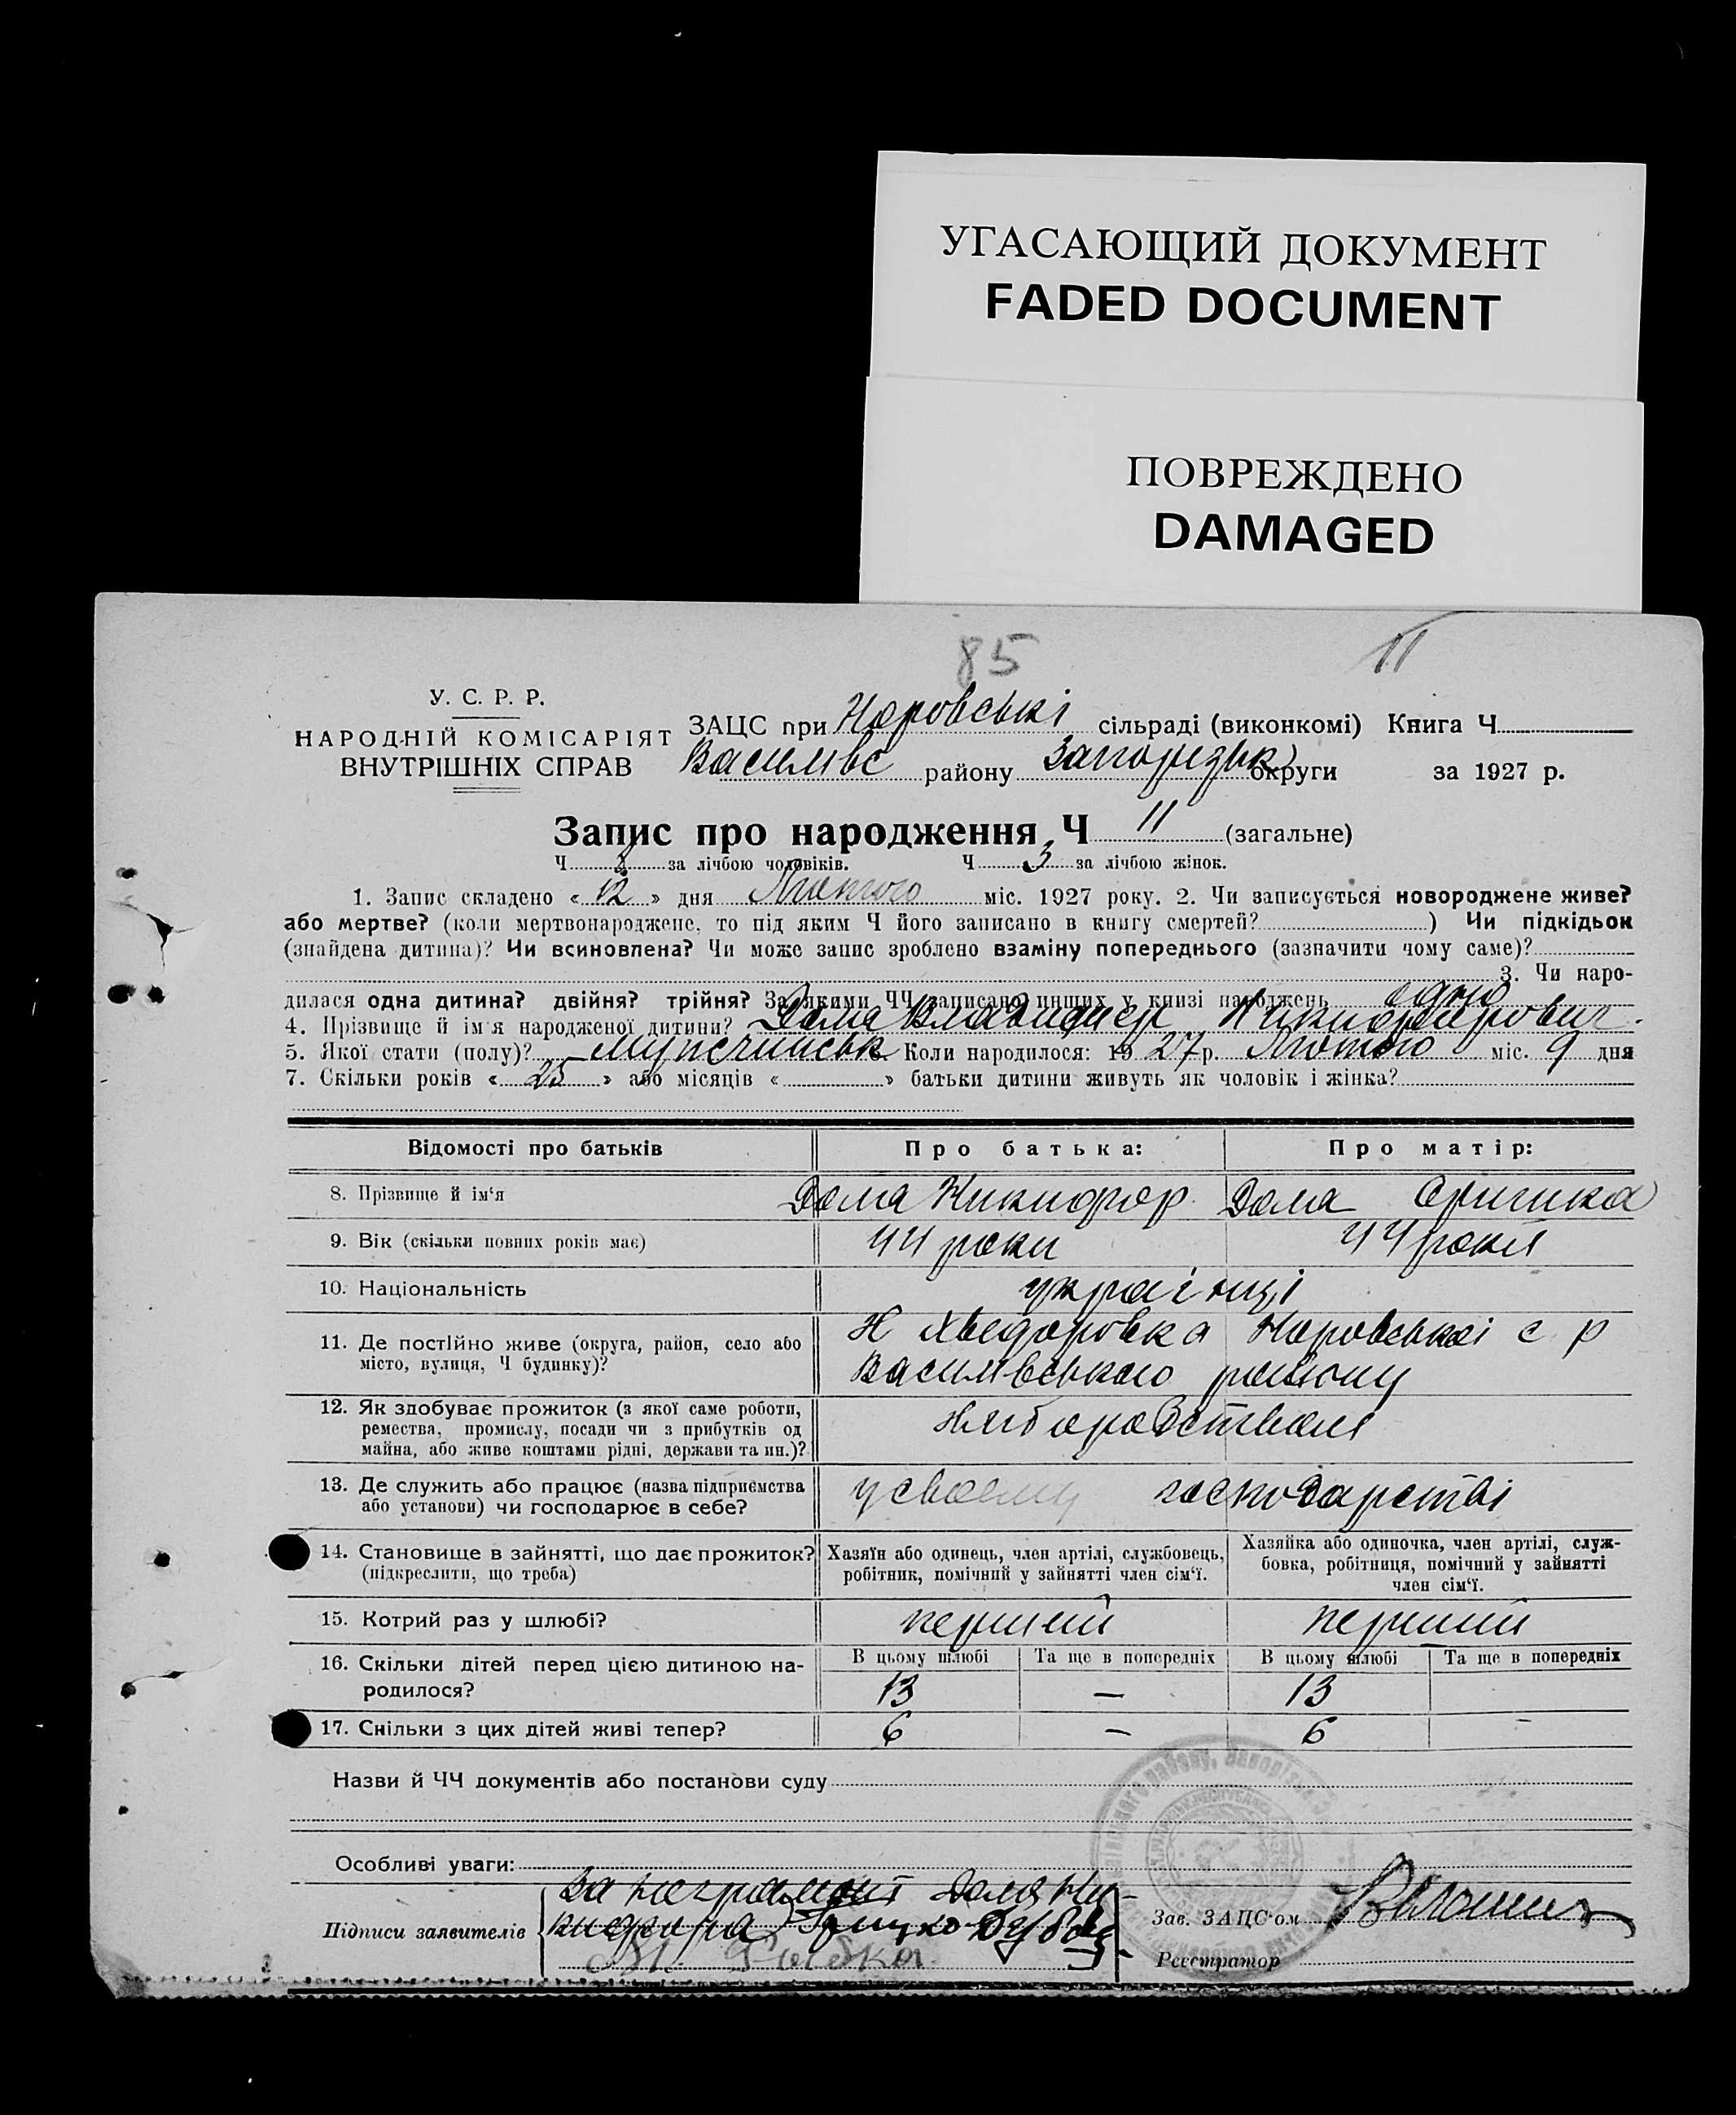 УГАСАЮЩИЙ ДОКУМЕНТ
FADED DOCUMENT
ПОВРЕЖДЕНО
DAMAGED
85
11
У. С. Р. Р.
НАРОДНІЙ КОМІСАРІЯТ
ВНУТРІШНІХ СПРАВ
ЗАЦС при сільраді (виконкомі) Книга Ч
Василівс району Запорізьк округи за 1927 р.
Запис про народження Ч 11 (загальне)
Ч за лічбою чоловіків. Ч 3 за лічбою жінок.
1. Запис складено « 12 » дня Лютого міс. 1927 року. 2. Чи записується новороджене живе?
або мертве? (коли мертвонароджене, то під яким Ч його записано в книгу смертей? ) Чи підкідьок
(знайдена дитина)? Чи всиновлена? Чи може запис зроблено взаміну попереднього (зазначити чому саме)?
3. Чи наро-
дилася одна дитина? двійня? трійня? За якими ЧЧ записано инших у книзі народжень одно
4. Прізвище й ім'я народженої дитини? Дома Владимер Никифорович.
5. Якої стати (полу)? Коли народилося: 19 27 р. Лютого міс. 9 дня
7. Скільки років « 25 » або місяців « » батьки дитини живуть як чоловік і жінка?
Відомості про батьків Про батька: Про матір:
8. Прізвище й ім'я Дома Никифор Дома
9. Вік (скільки повних років має) 44 роки 44 роки
10. Національність українці
11. Де постійно живе (округа, район, село або
місто, вулиця, Ч будинку)?
Н Хведоровка с р
Василівського району
12. Як здобуває прожиток (з якої саме роботи,
ремества, промислу, посади чи з прибутків од
майна, або живе коштами рідні, держави та ин.)?
13. Де служить або працює (назва підприємства
або установи) чи господарює в себе?
у своєму господарстві
14. Становище в зайнятті, що дає прожиток?
(підкреслити, що треба)
Хазяїн або одинець, член артілі, службовець,
робітник, помічний у зайнятті член сім'ї.
Хазяйка або одиночка, член артілі, служ-
бовка, робітниця, помічний у зайнятті
член сім'ї.
15. Котрий раз у шлюбі? перший перший
16. Скільки дітей перед цією дитиною на-
родилося?
В цьому шлюбі Та ще в попередніх В цьому шлюбі Та ще в попередніх
13 — 13
17. Скільки з цих дітей живі тепер? 6 — 6 -
Назви й ЧЧ документів або постанови суду
Особливі уваги:
Підписи заявителів
За неграмот Дома Ни-
кифора
Зав. ЗАЦС'ом
Реєстратор